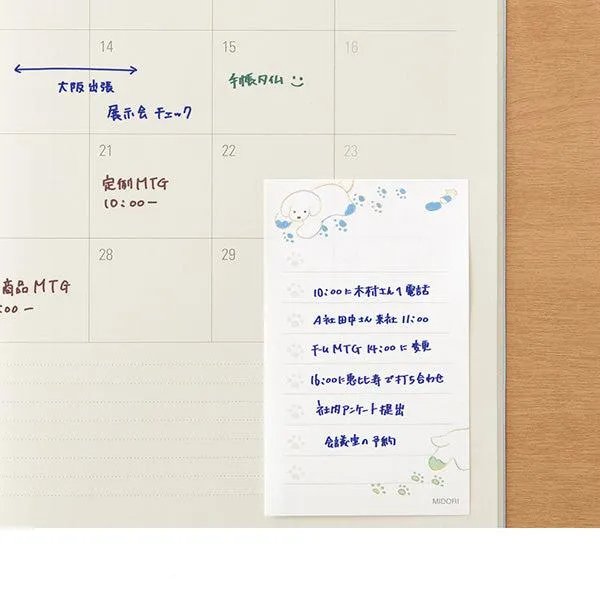 14
15
16
大阪出張
展示会チェック
手帳タイム
21
22
23
定例MTG
10:00ー
28
29
商品MTG
:00ー
10:00に木村さんへ電話
A社田中さん来社 11:00
チームMTG 14:00に変更
16:00に恵比寿で打ち合わせ
社内アンケート提出
会議室の予約
MIDORI